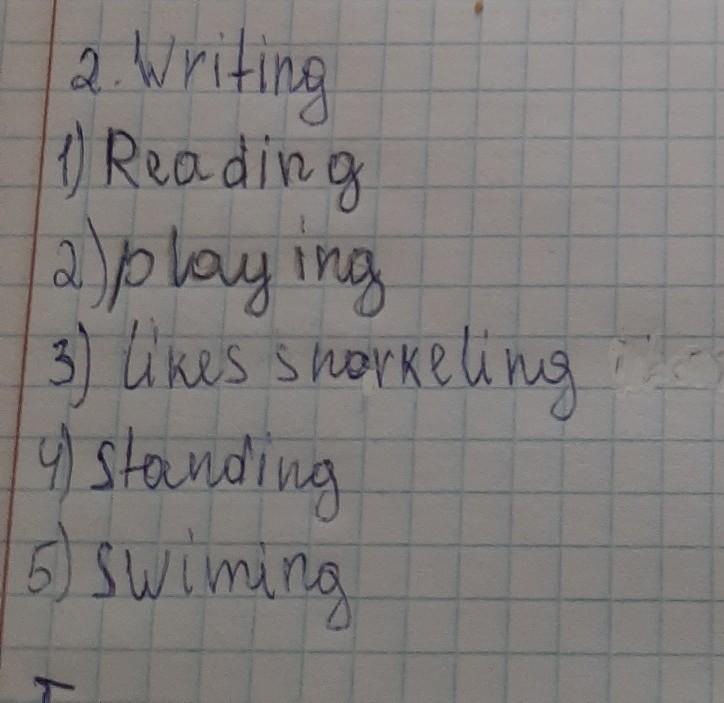 2. Writing
1) Reading
2) playing
3) likes snorkeling
4) Standing
5) Swiming